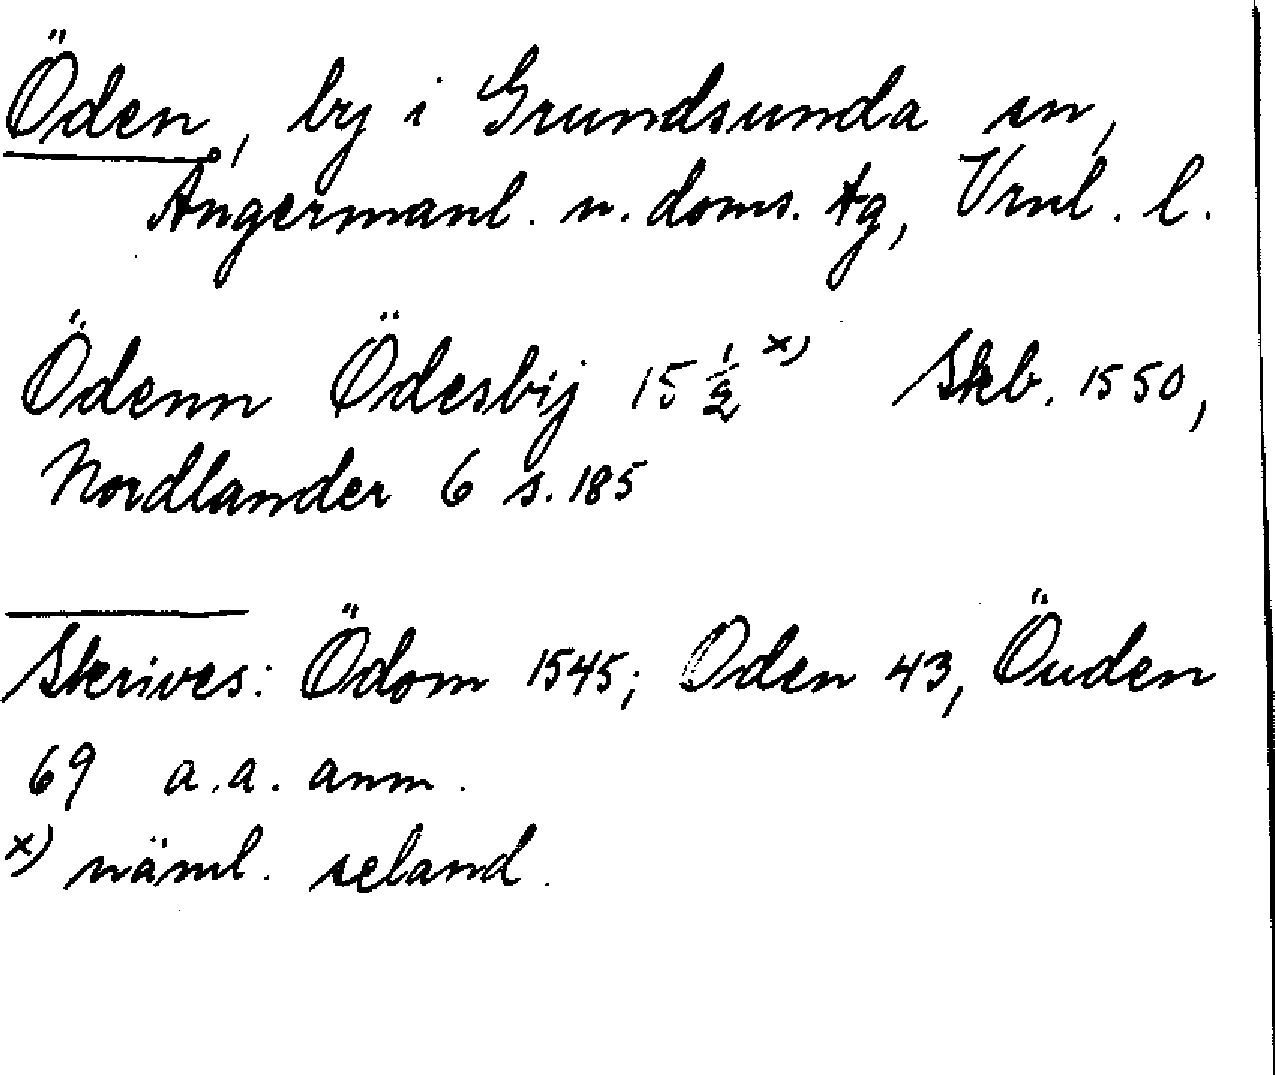 Öden, by i Grundsunda sn,
Ångermanl. n. doms. tg, Vrnl. l.
Ödenn Ödesbij 15 ½ x) Skb. 1550,
Nordlander 6 s. 185
Skrives: Ödom 1545; Oden 43, Öuden
69 a.a. anm.
x) näml. seland.